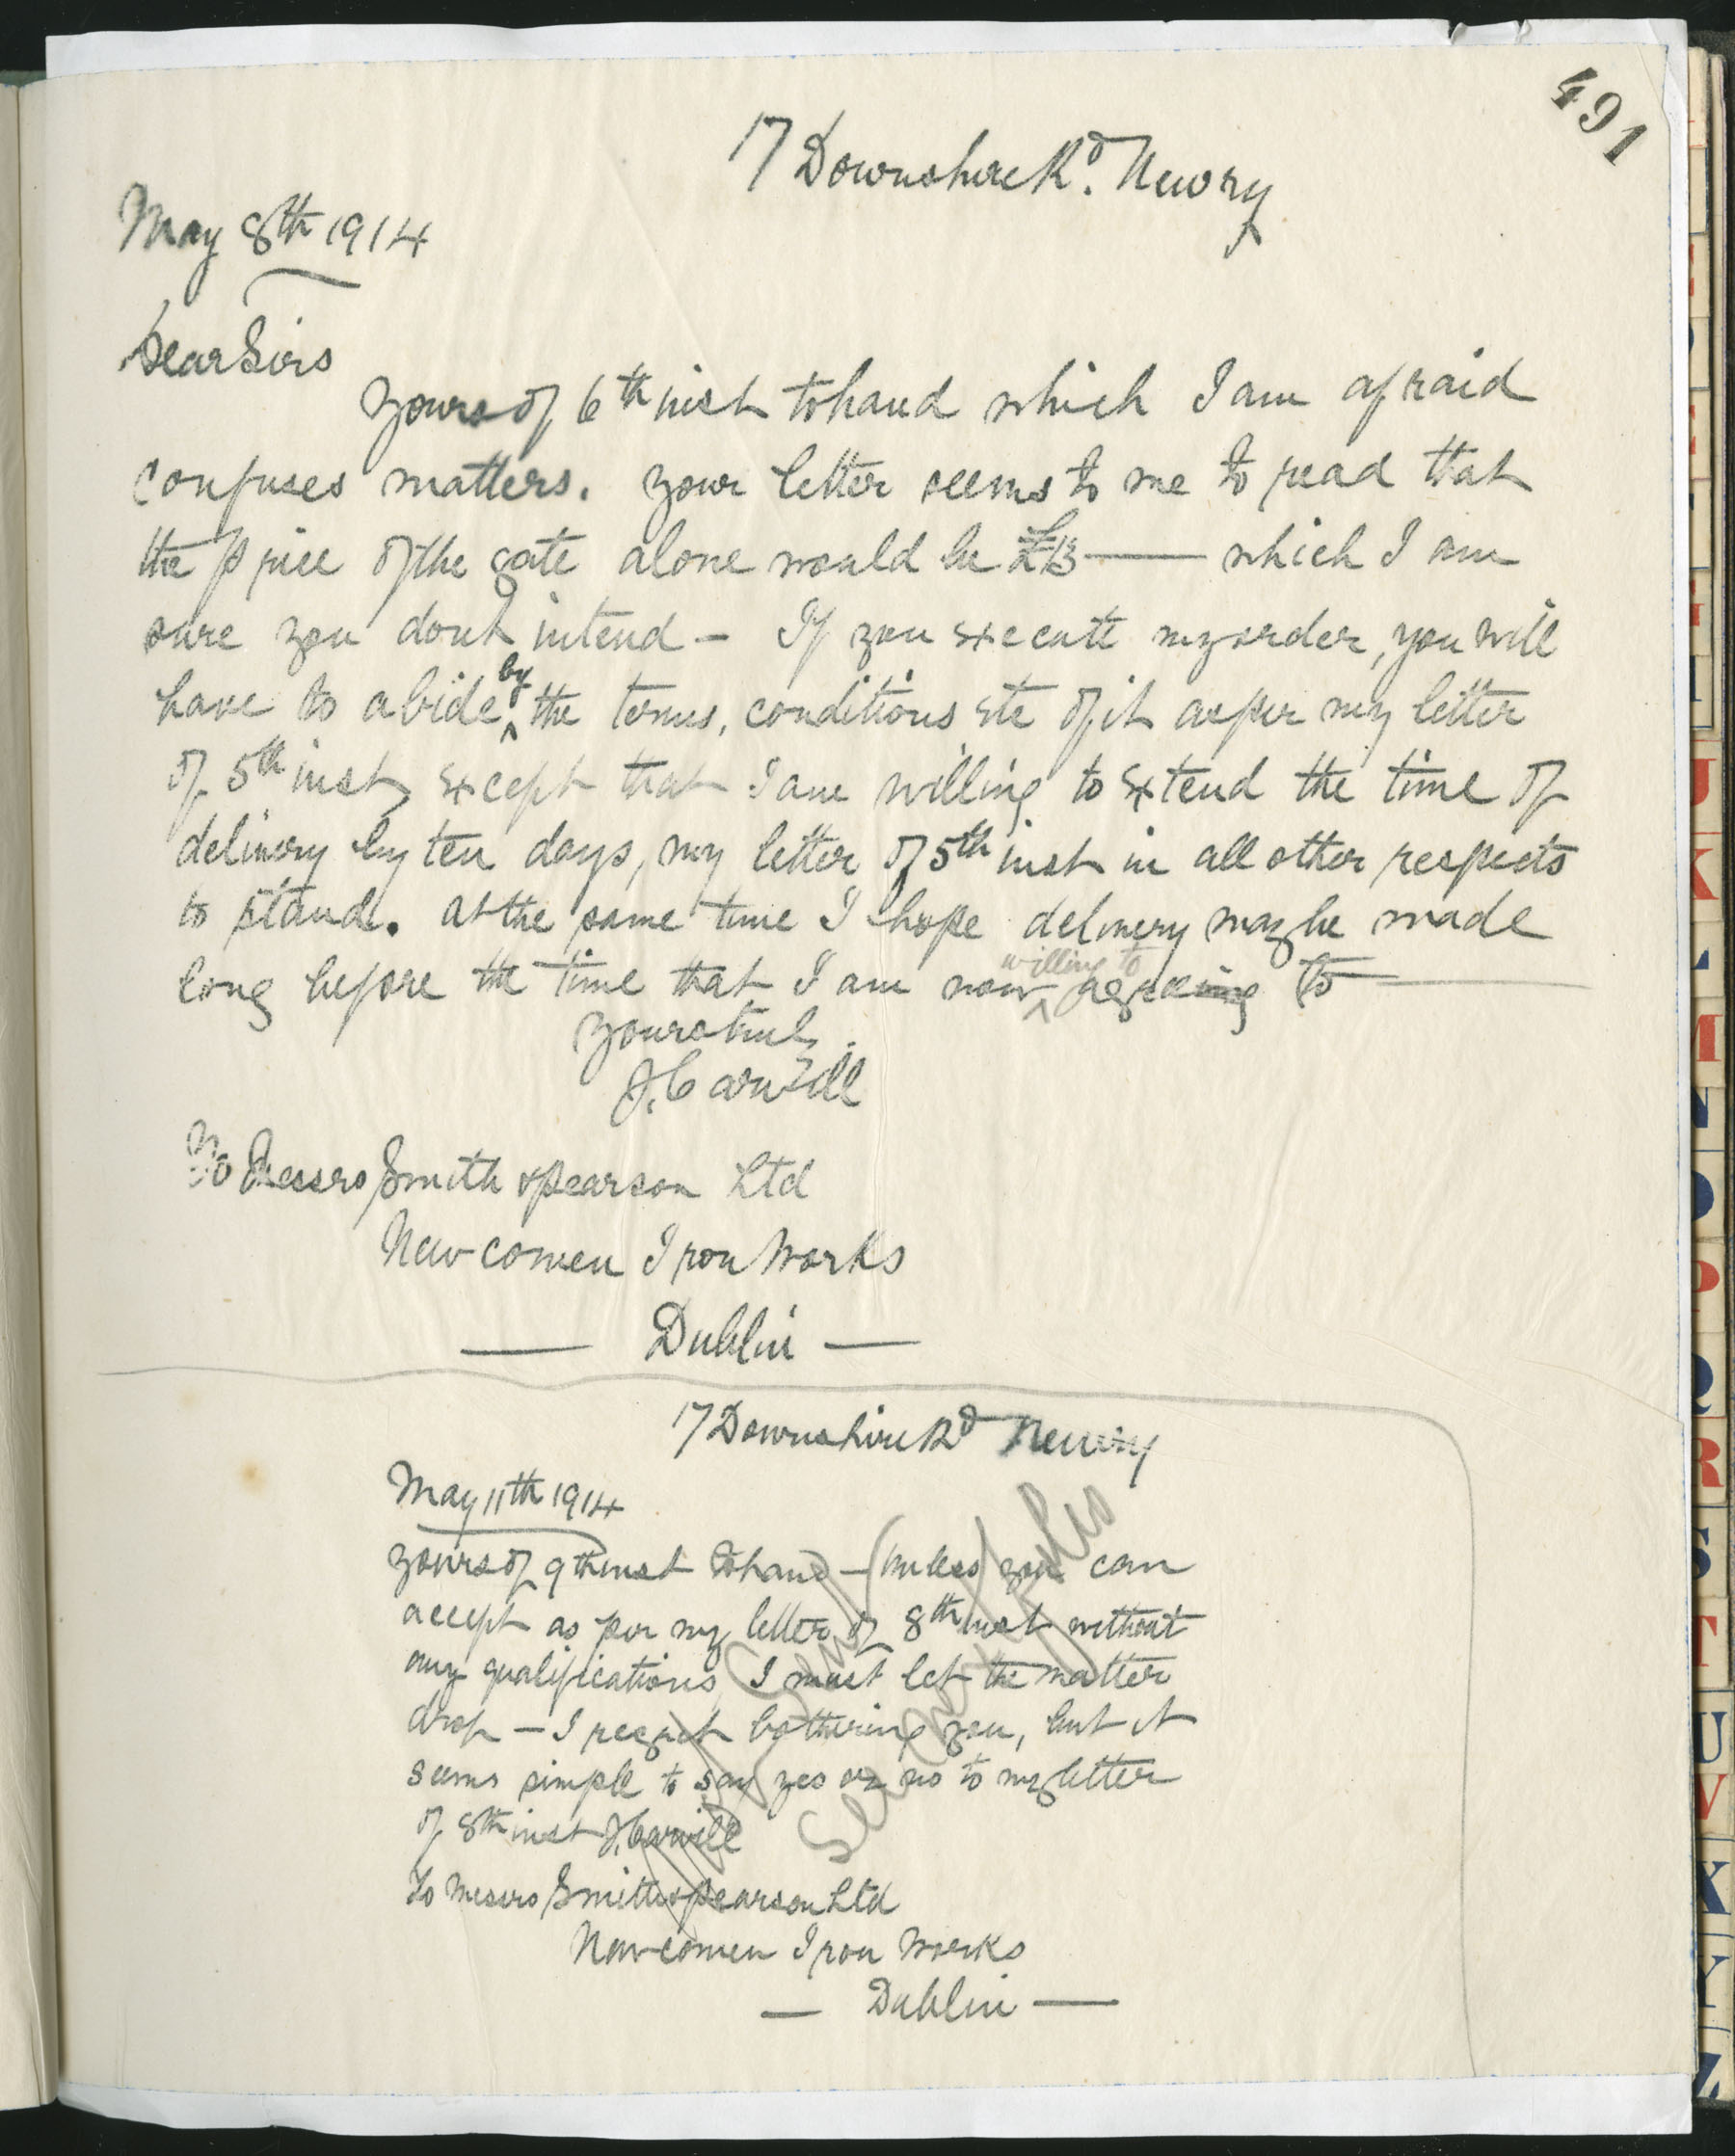 491
17 Downshire Rd. Newry
May 8th 1914
Dear Sirs
Yours of 6th inst to hand which I am afraid
confuses matters. Your letter seems to me to read that
the price of the gate alone would be £13 — which I am
sure you dont intend - If you execute my order, you will
have to abide by the terms, conditions etc of it as per my letter
of 5th inst, except that I am willing to extend the time of
delivery by ten days, my letter of 5th inst in all other respects
to stand. At the same time I hope delivery may be made
long before the time that I am now willing to agreeing to —
Yours truly
J. Carvill
To Messrs Smith & Pearson Ltd
Newcomen Iron Works
— Dublin —
17 Downshire Rd Newry
May 11th 1914
Yours of 9th inst to hand - (unless) you can
accept as per my letter of 8th inst without
any qualifications, I must let the matter
drop - I regret bothering you, but it
seems simple to say yes or no to my letter
of 8th inst J. Carvill
To Messrs Smith & Pearson Ltd
Newcomen Iron Works
— Dublin —
Not Sent
See
J
K
L
M
N
O
P
Q
R
S
T
U
V
X
Y
Z